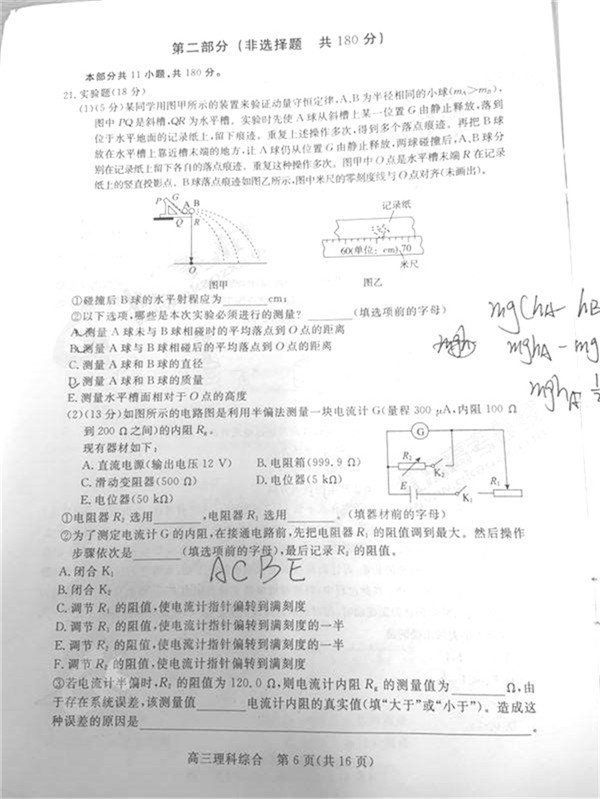 第二部分(非选择题 共180分)
本部分共11小题,共180分。
21.实验题(18分)
(1)(5分)某同学用图甲所示的装置来验证动量守恒定律,A、B为半径相同的小球(mA>mB)。
图中PQ是斜槽,QR为水平槽。实验时先使A球从斜槽上某一位置G由静止释放,落到
位于水平地面的记录纸上,留下痕迹。重复上述操作多次,得到多个落点痕迹。再把B球
放在水平槽上靠近槽末端的地方,让A球仍从位置G由静止释放,两球碰撞后,A、B球分
别在记录纸上留下各自的落点痕迹。重复这种操作多次。图甲中O点是水平槽末端R在记录
纸上的竖直投影点。B球落点痕迹如图乙所示,图中米尺的零刻度线与O点对齐(未画出)。
P G A B
Q R
O
图甲
记录纸
60(单位:cm)70
米尺
图乙
①碰撞后B球的水平射程应为______cm;
②以下选项,哪些是本次实验必须进行的测量?______(填选项前的字母)
A.测量A球未与B球相碰时的平均落点到O点的距离
B.测量A球与B球相碰后的平均落点到O点的距离
C.测量A球和B球的直径
D.测量A球和B球的质量
E.测量水平槽面相对于O点的高度
mg(hA- hB
mghA - mg
mghA
(2)(13分)如图所示的电路图是利用半偏法测量一块电流计G(量程300 μA,内阻100 Ω
到200 Ω之间)的内阻Rg。
现有器材如下:
A.直流电源(输出电压12 V) B.电阻箱(999.9 Ω)
C.滑动变阻器(500 Ω) D.电位器(5 kΩ)
E.电位器(50 kΩ)
G
R2
K2
E
K1
R1
①电阻器R2选用______,电阻器R1选用______。(填器材前的字母)
②为了测定电流计G的内阻,在接通电路前,先把电阻器R1的阻值调到最大。然后操作
步骤依次是______(填选项前的字母),最后记录R2的阻值。
A.闭合K1
ACBE
B.闭合K2
C.调节R1的阻值,使电流计指针偏转到满刻度
D.调节R1的阻值,使电流计指针偏转到满刻度的一半
E.调节R2的阻值,使电流计指针偏转到满刻度的一半
F.调节R2的阻值,使电流计指针偏转到满刻度
③若电流计半偏时,R2的阻值为120.0 Ω,则电流计内阻Rg的测量值为______Ω,由
于存在系统误差,该测量值______电流计内阻的真实值(填“大于”或“小于”)。造成这
种误差的原因是______。
高三理科综合 第6页(共16页)